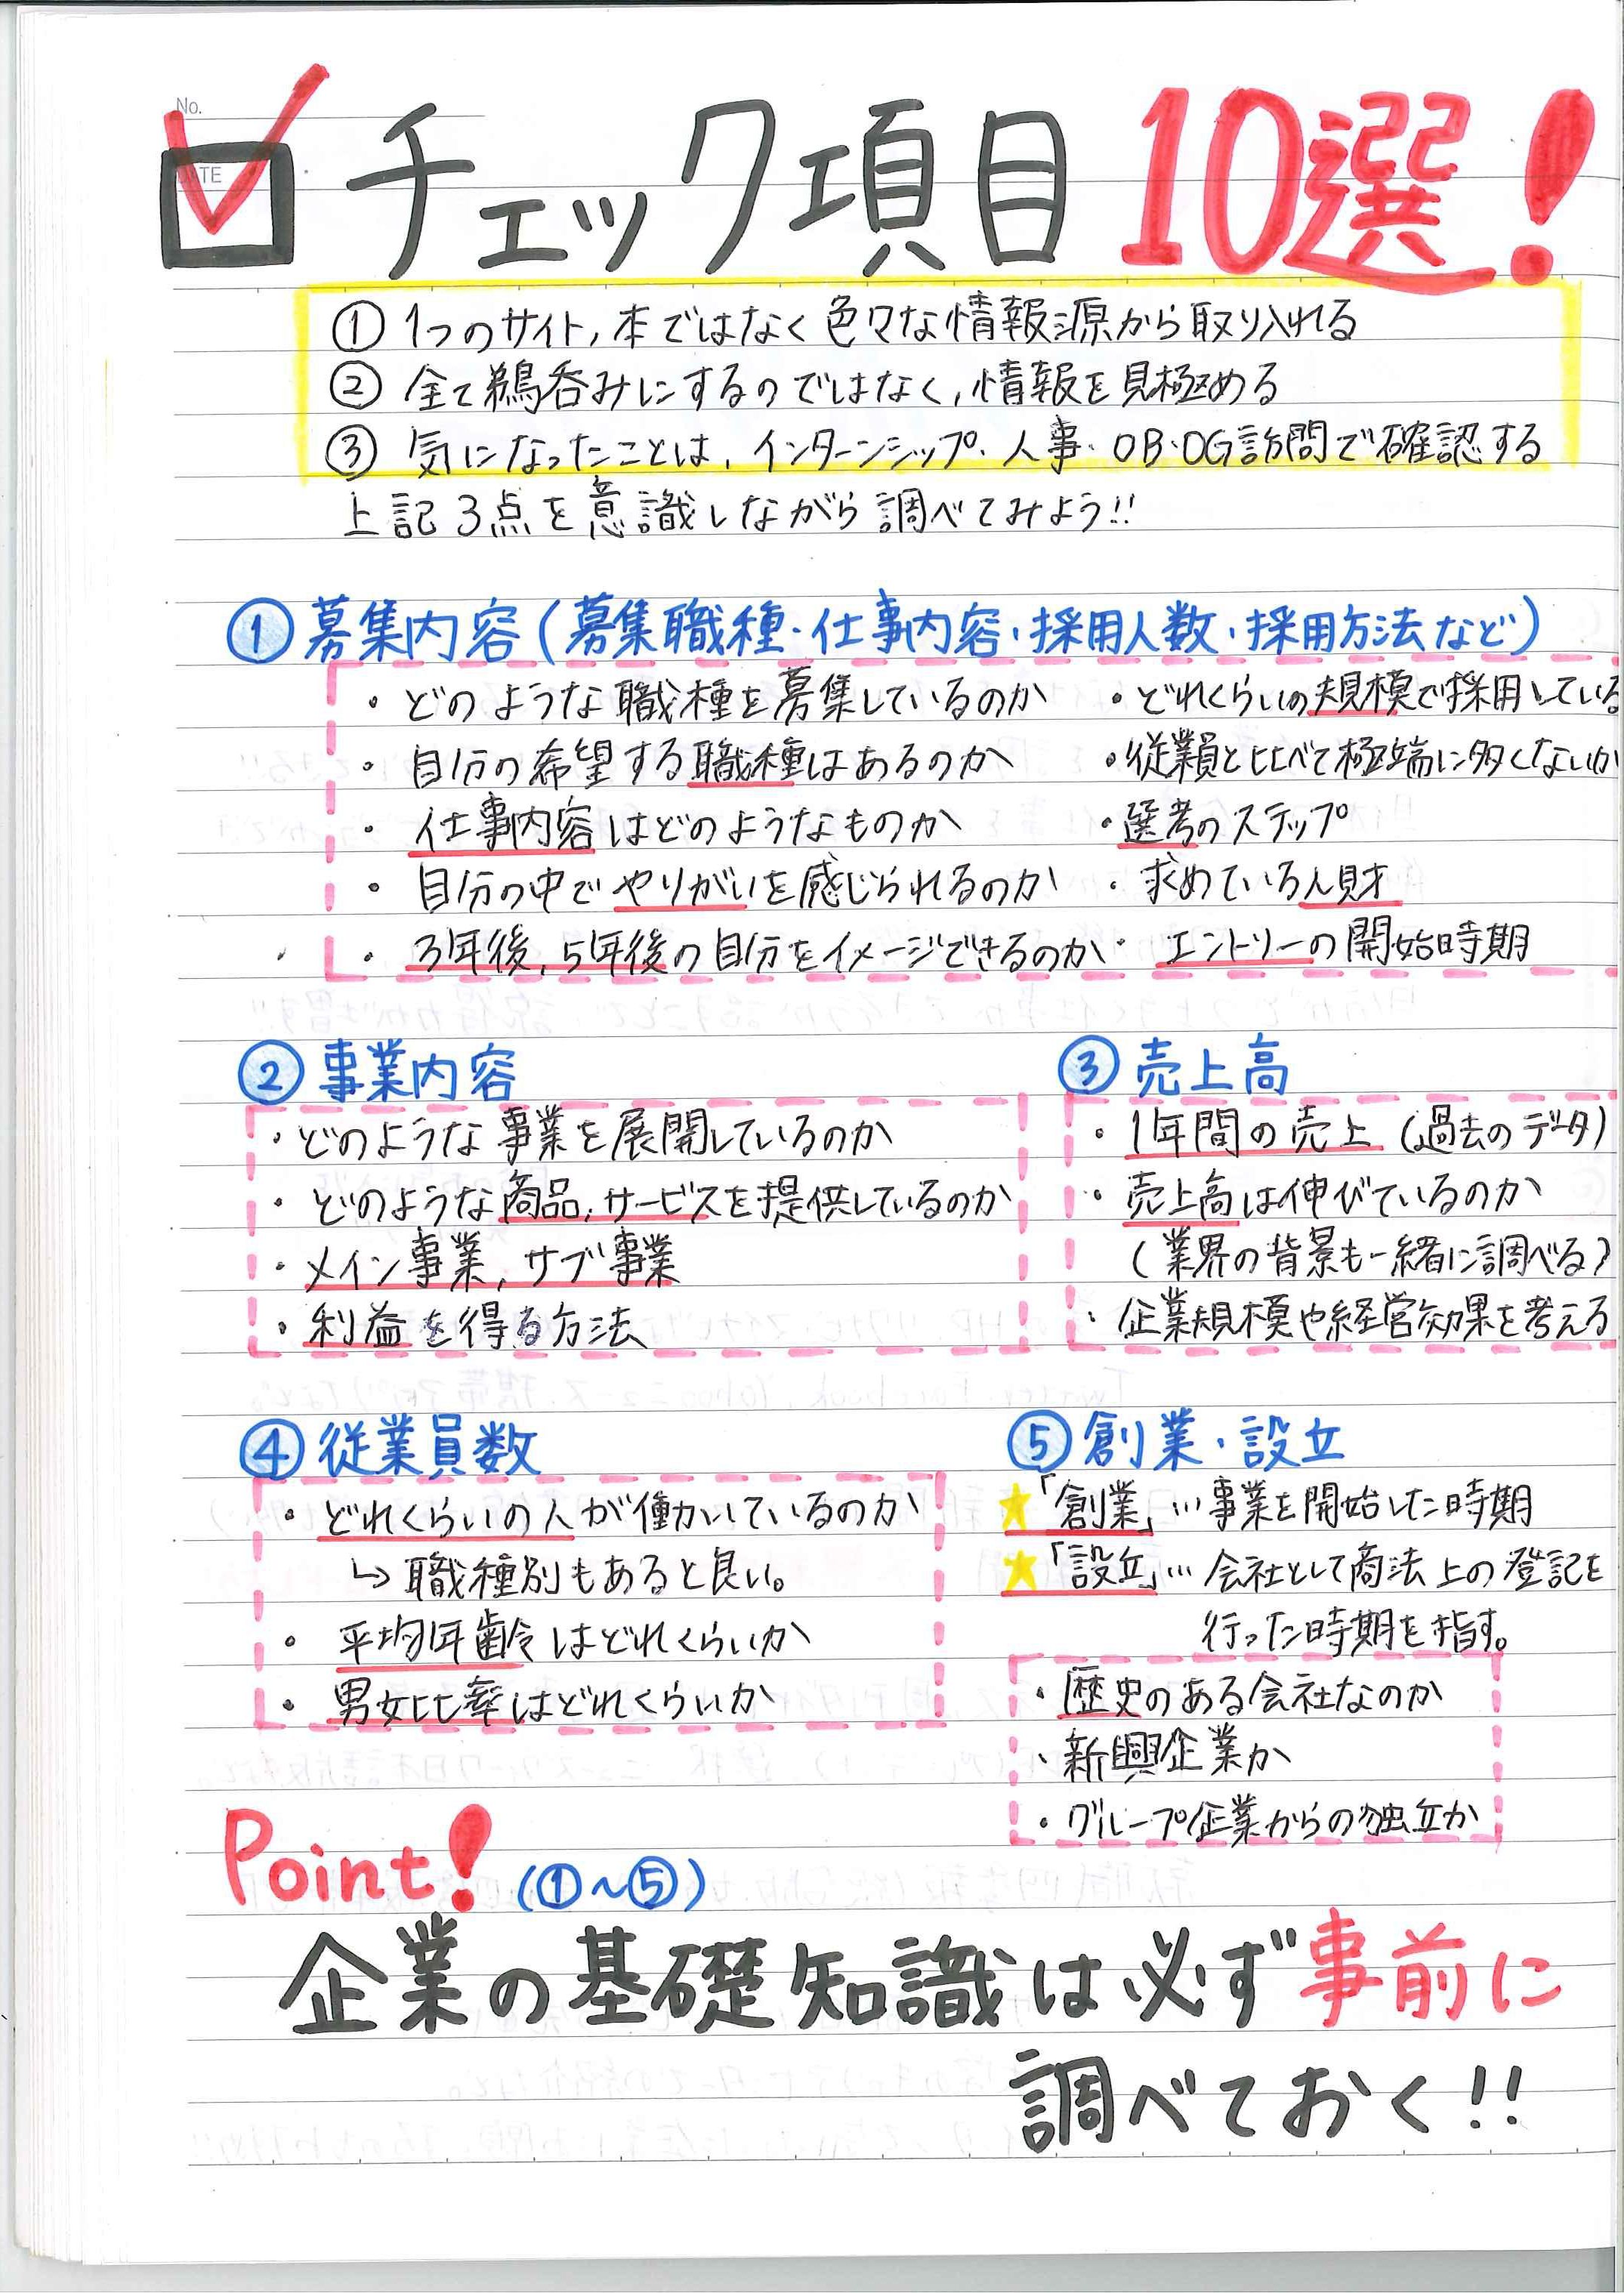 No.
DATE
チェック項目10選!
① 1つのサイト,本ではなく色々な情報源から取り入れる
② 全て鵜呑みにするのではなく,情報を見極める
③ 気になったことは,インターンシップ・人事・OB・OG訪問で確認する
上記3点を意識しながら調べてみよう!!
① 募集内容(募集職種・仕事内容・採用人数・採用方法など)
・どのような職種を募集しているのか
・自分の希望する職種はあるのか
・仕事内容はどのようなものか
・自分の中でやりがいを感じられるのか
・3年後,5年後の自分をイメージできるのか
・どれくらいの規模で採用している
・従業員と比べて極端に多くないか
・選考のステップ
・求めている人財
・エントリーの開始時期
② 事業内容
・どのような事業を展開しているのか
・どのような商品,サービスを提供しているのか
・メイン事業,サブ事業
・利益を得る方法
③ 売上高
・1年間の売上(過去のデータ)
・売上高は伸びているのか
(業界の背景も一緒に調べる)
・企業規模や経営効果を考える
④ 従業員数
・どれくらいの人が働いているのか
↳職種別もあると良い。
・平均年齢はどれくらいか
・男女比率はどれくらいか
⑤ 創業・設立
★「創業」…事業を開始した時期
★「設立」…会社として商法上の登記を
行った時期を指す。
・歴史のある会社なのか
・新興企業か
・グループ企業からの独立か
Point! (①~⑤)
企業の基礎知識は必ず事前に
調べておく!!